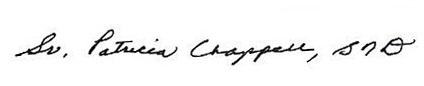 Sr. Patricia Chappell, SND